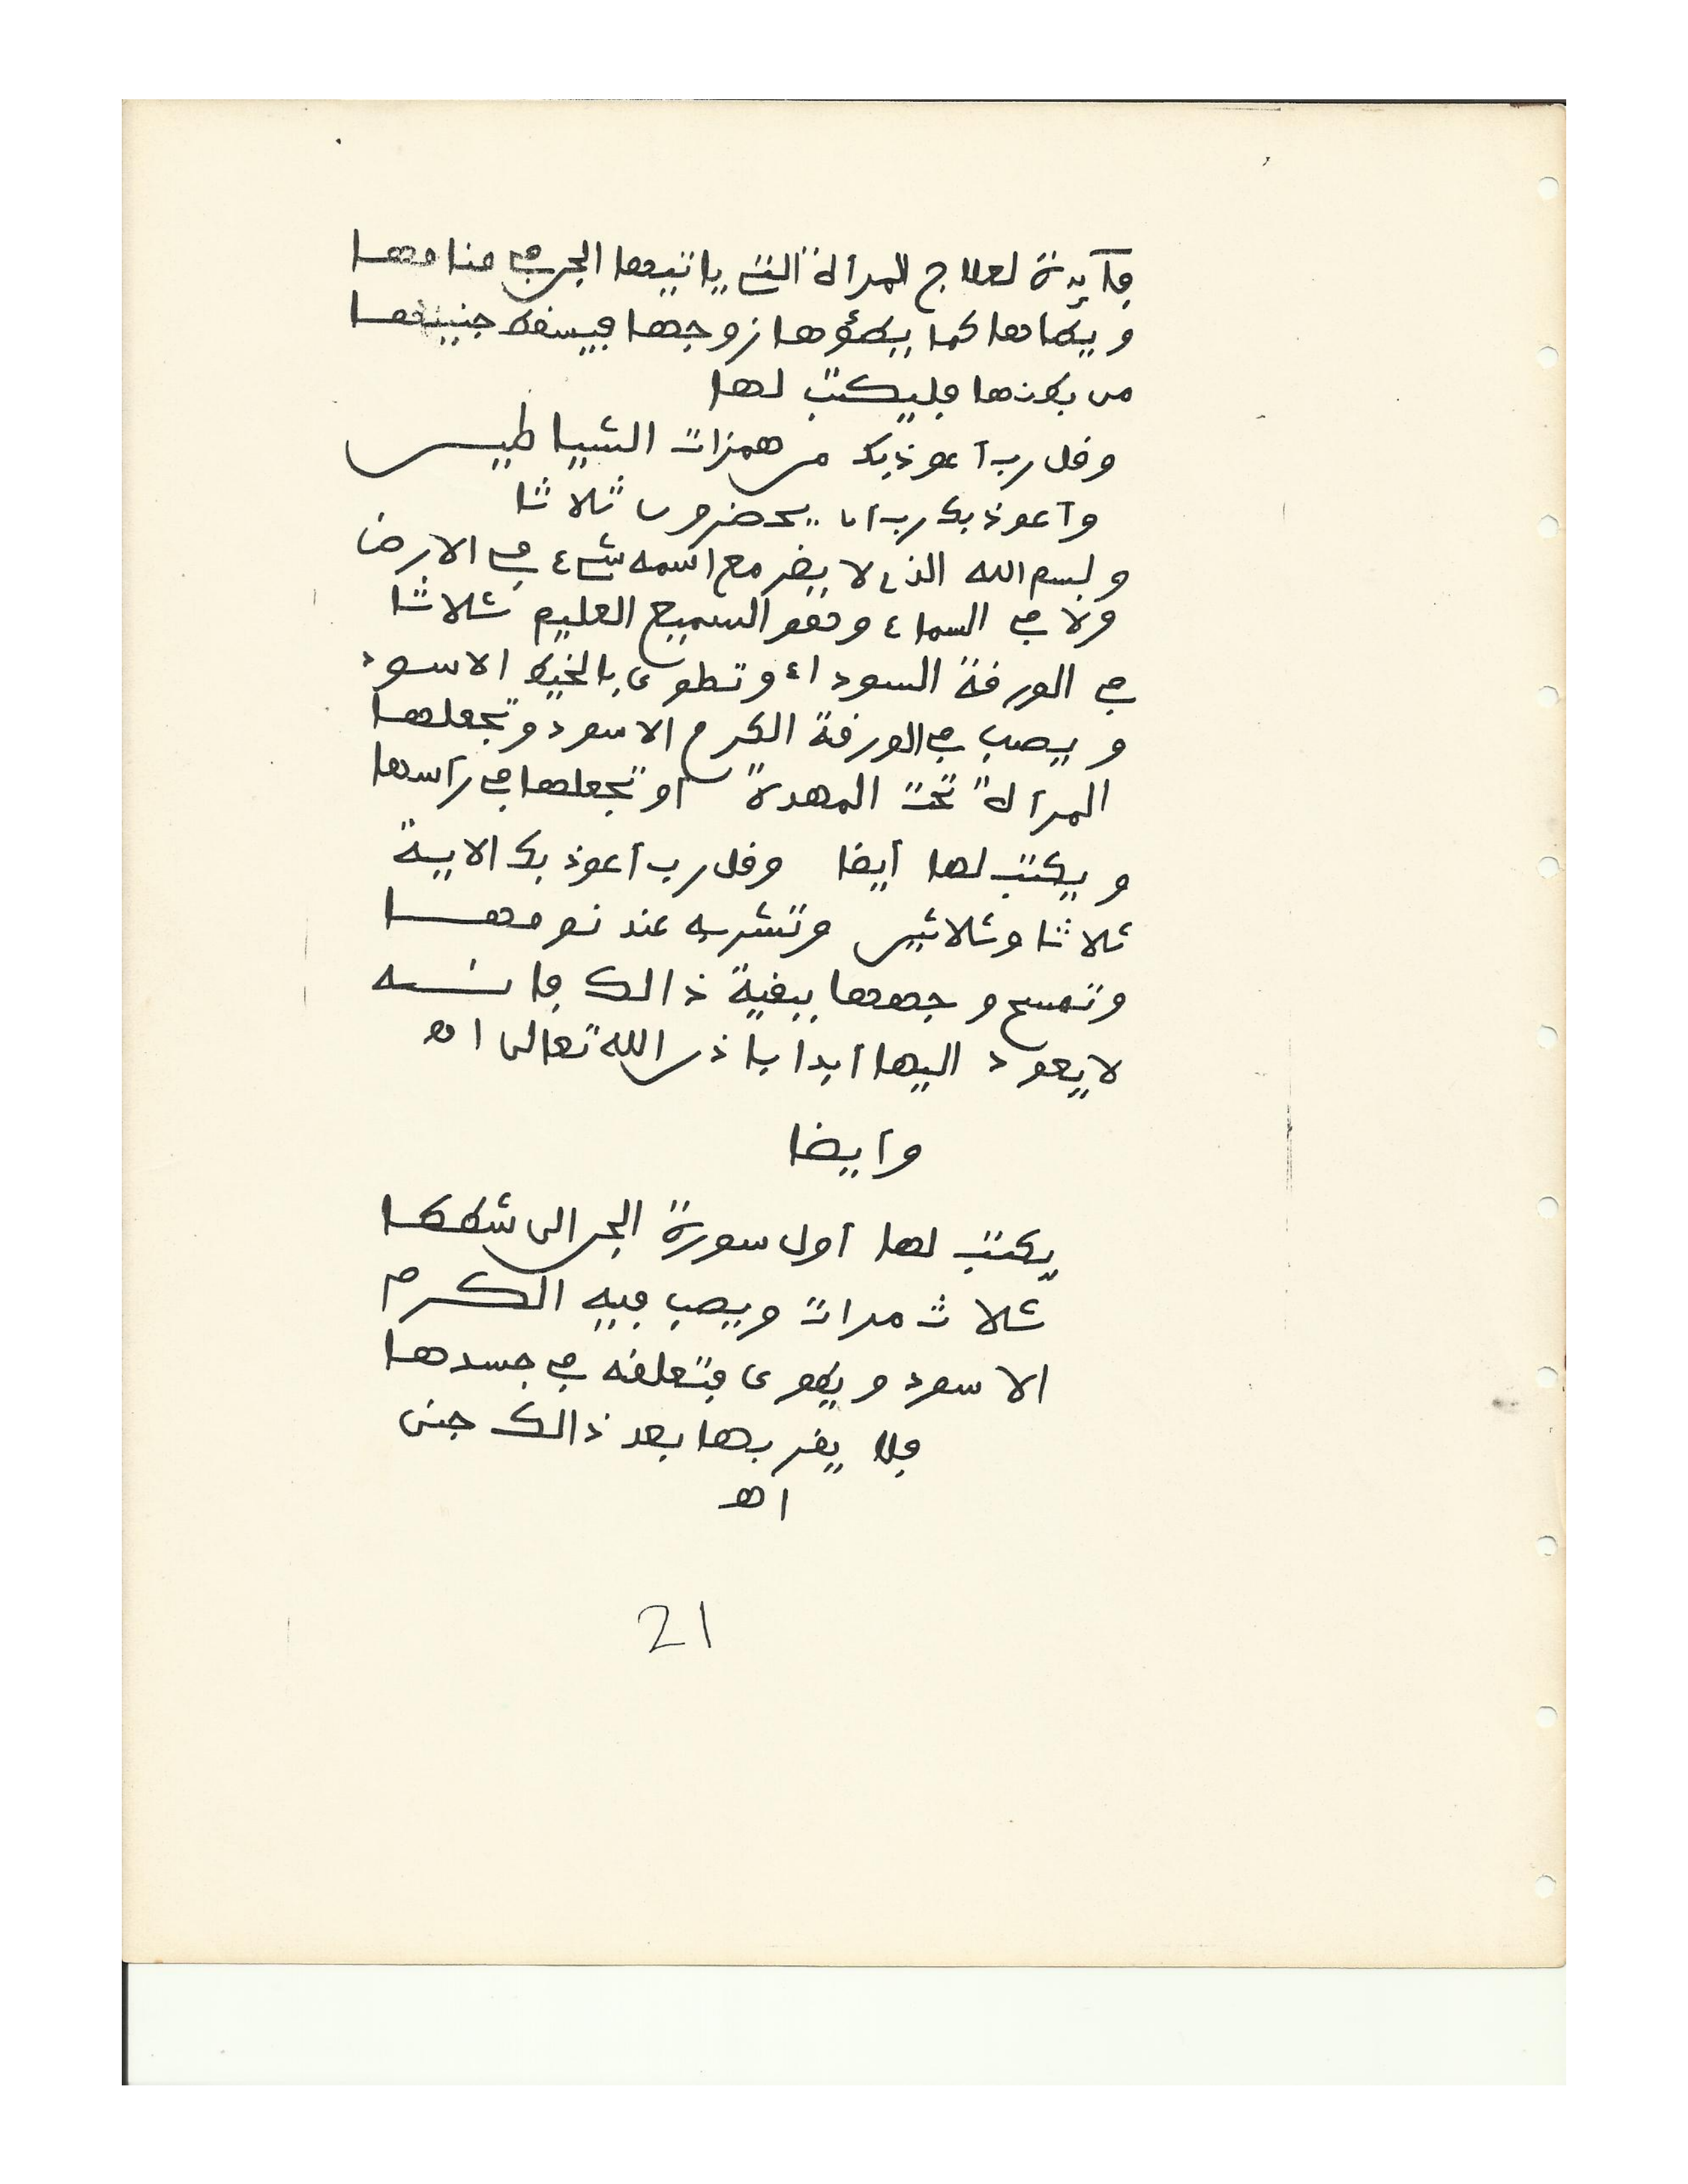 فآئدة لعلاج المرأة التي ياتيها الجن في منامها
ويطاها كما يطؤها زوجها فيسقط جنينها
من بطنها فليكتب لها
وقل رب أعوذ بك من همزات الشياطين
وأعوذ بك رب أن يحضرون ثلاثا
وبسم الله الذي لا يضر مع اسمه شيء في الارض
ولا في السماء وهو السميع العليم ثلاثا
في الورقة السوداء وتطوى بالخيط الاسود
ويصب في الورقة الكرم الاسود وتجعلها
المرأة تحت المهدة أو تجعلها في رأسها
ويكتب لها أيضا وقل رب أعوذ بك الاية
ثلاثا وثلاثين وتشربه عند نومها
وتمسح وجهها ببقية ذالك فانه
لا يعود اليها أبدا باذن الله تعالى اه
وأيضا
يكتب لها أول سورة الجن الى شططا
ثلاث مرات ويصب فيه الكرم
الاسود ويطوى فتعلقه في جسدها
فلا يقربها بعد ذالك جنى
اه
21